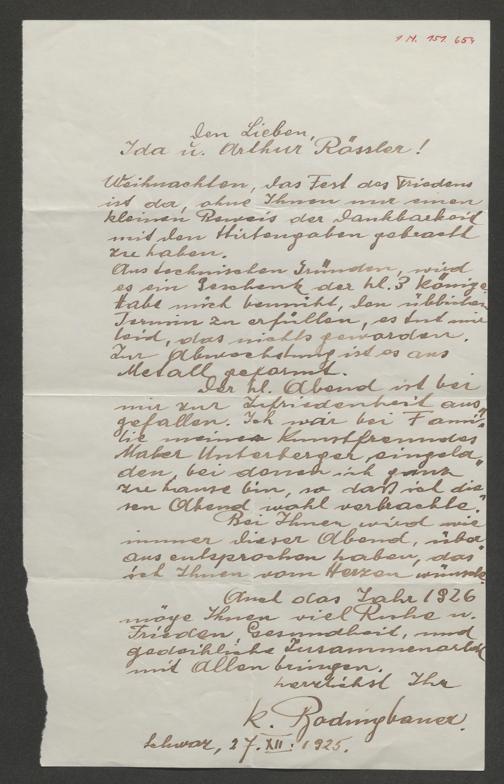 1 N. 151.654
Den Lieben,
Ida u. Arthur Rössler!
Weihnachten, das Fest des Friedens
ist da, ohne Ihnen nur einen
kleinen Beweis der Dankbarkeit
mit den Hirtengaben gebracht
zu haben.
Aus technischen Gründen, wird
es ein Geschenk der hl. 3 Könige.
Habe mich bemüht, den üblichen
Termin zu erfüllen, es tut mir
leid, das nichts geworden.
Zur Abwechslung ist es aus
Metall geformt.
Der hl. Abend ist bei
mir zur Zufriedenheit aus-
gefallen. Ich war bei Fami-
lie meines Kunstfreundes
Maler Unterberger eingela-
den, bei denen ich ganz
zu hause bin, so daß ich die-
sen Abend wohl verbrachte.
Bei Ihnen wird wie
immer dieser Abend, über-
aus entsprochen haben, das
ich Ihnen vom Herzen wünsche.
Auch das Jahr 1926
möge Ihnen viel Ruhe u.
Frieden, Gesundheit, und
gedeihliche Zusammenarbeit
mit Allen bringen.
herzlichst Ihr
K. Rodingbauer.
Schwaz, 27. XII. 1925.